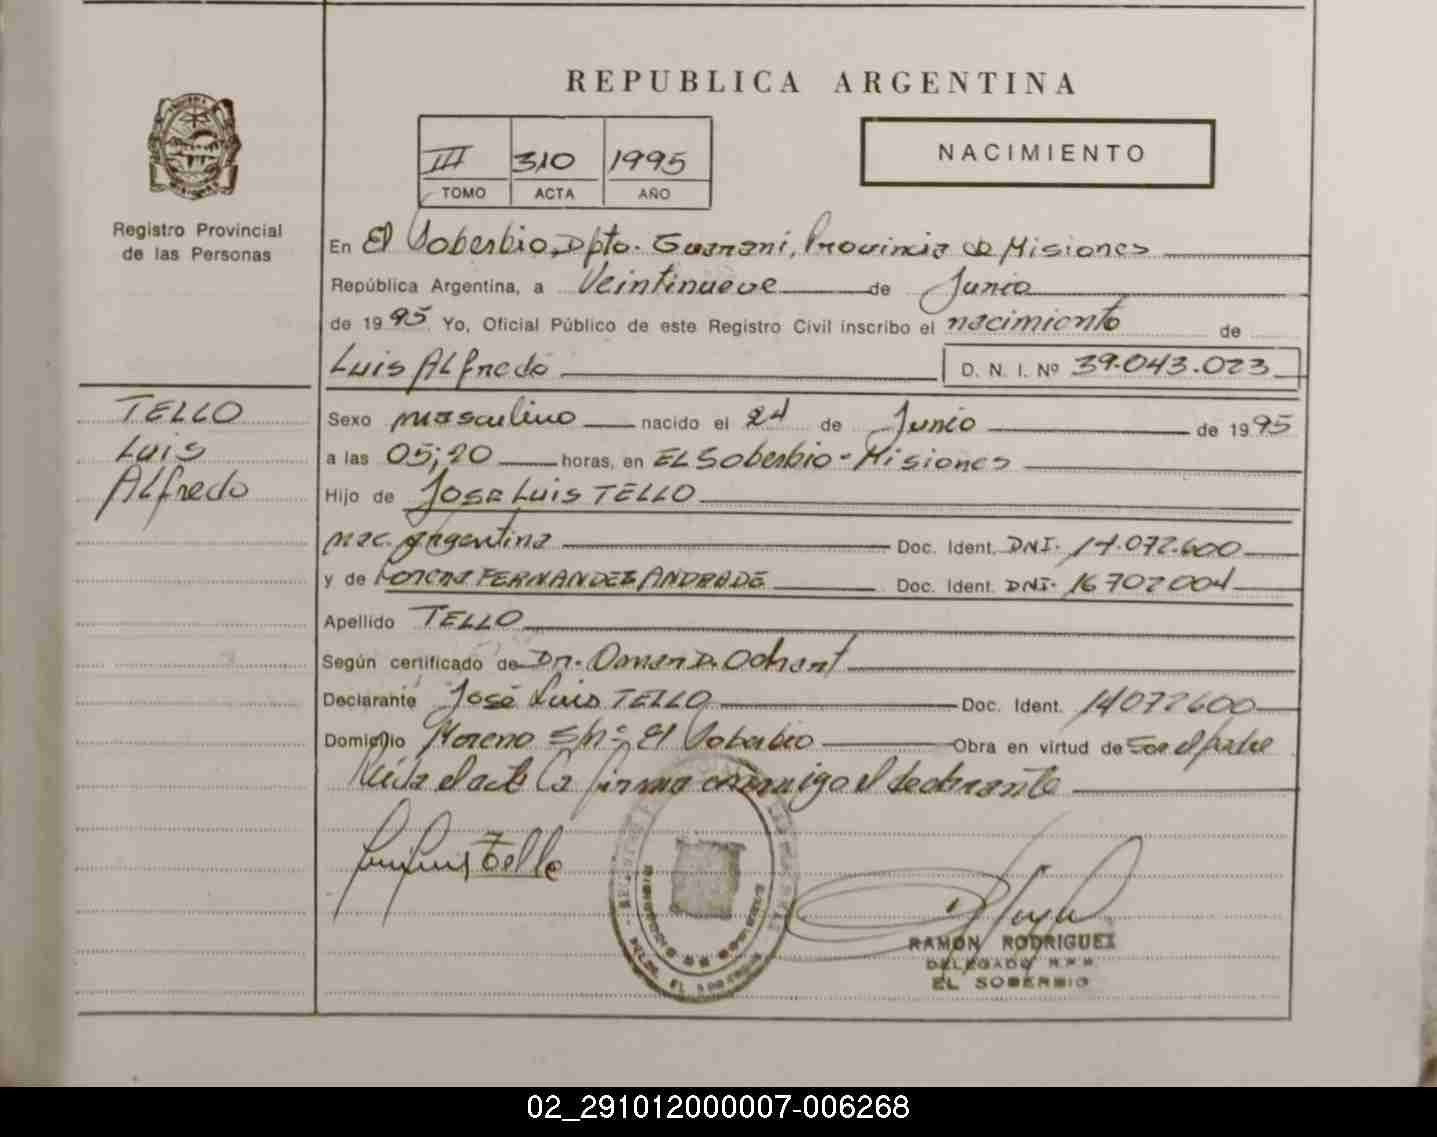 REPUBLICA ARGENTINA
III 310 1995
TOMO ACTA AÑO
NACIMIENTO
Registro Provincial
de las Personas
En El Soberbio, Dpto. Guaraní, Provincia de Misiones
República Argentina, a Veintinueve de Junio
de 1995 Yo, Oficial Público de este Registro Civil inscribo el nacimiento de
Luis ALfredo D. N. I. Nº 39.043.023
TELLO
Luis
ALfredo
Sexo masculino nacido el 24 de Junio de 1995
a las 05;20 horas, en EL Soberbio - Misiones
Hijo de Jose Luis TELLO
nac. argentina Doc. Ident. DNI. 14.072.600
y de FERNANDEZ ANDRADE Doc. Ident. DNI. 16702004
Apellido TELLO
Según certificado de Dr. Omar D.
Declarante José Luis TELLO Doc. Ident. 14072600
Domicilio Moreno S/nº El Soberbio Obra en virtud de Ser el padre
Leída el acta La firma conmigo el declarante
Tello
RAMON RODRIGUEZ
DELEGADO R.P.P.
EL SOBERBIO
02_291012000007-006268